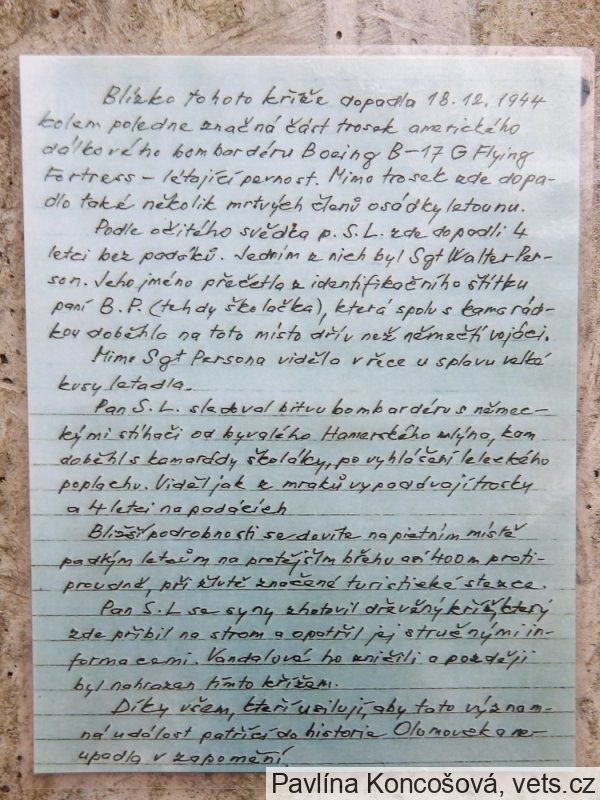 Blízko tohoto kříže dopadla 18.12.1944
kolem poledne značná část trosek amerického
dálkového bombardéru Boeing B-17 G Flying
Fortress – létající pevnost. Mimo trosek zde dopa-
dlo také několik mrtvých členů osádky letounu.
Podle očitého svědka p. S. L. zde dopadli 4
letci bez padáků. Jedním z nich byl Sgt Walter Per-
son. Jeho jméno přečetla z identifikačního štítku
paní B. P. (tehdy školačka), která spolu s kamarád-
kou doběhla na toto místo dřív než němečtí vojáci.
Mimo Sgt Persona viděla v řece u splavu velké
kusy letadla.
Pan S. L. sledoval bitvu bombardéru s němec-
kými stíhači od bývalého Hamerského mlýna, kam
doběhl s kamarády školáky, po vyhlášení leteckého
poplachu. Viděl jak z mraků vypadávají trosky
a 4 letci na padácích
Bližší podrobnosti se dovíte na pietním místě
padlým letcům na protějším břehu asi 400m proti-
proudně, při žlutě značené turistické stezce.
Pan S. L se syny zhotovil dřevěný kříž, který
zde přibil na strom a opatřil jej stručnými in-
formacemi. Vandalové ho zničili a později
byl nahrazen tímto křížem.
Díky všem, kteří usilují, aby tato význam-
ná událost patřící do historie Olomoucka ne-
upadla v zapomění.
Pavlína Koncošová, vets.cz